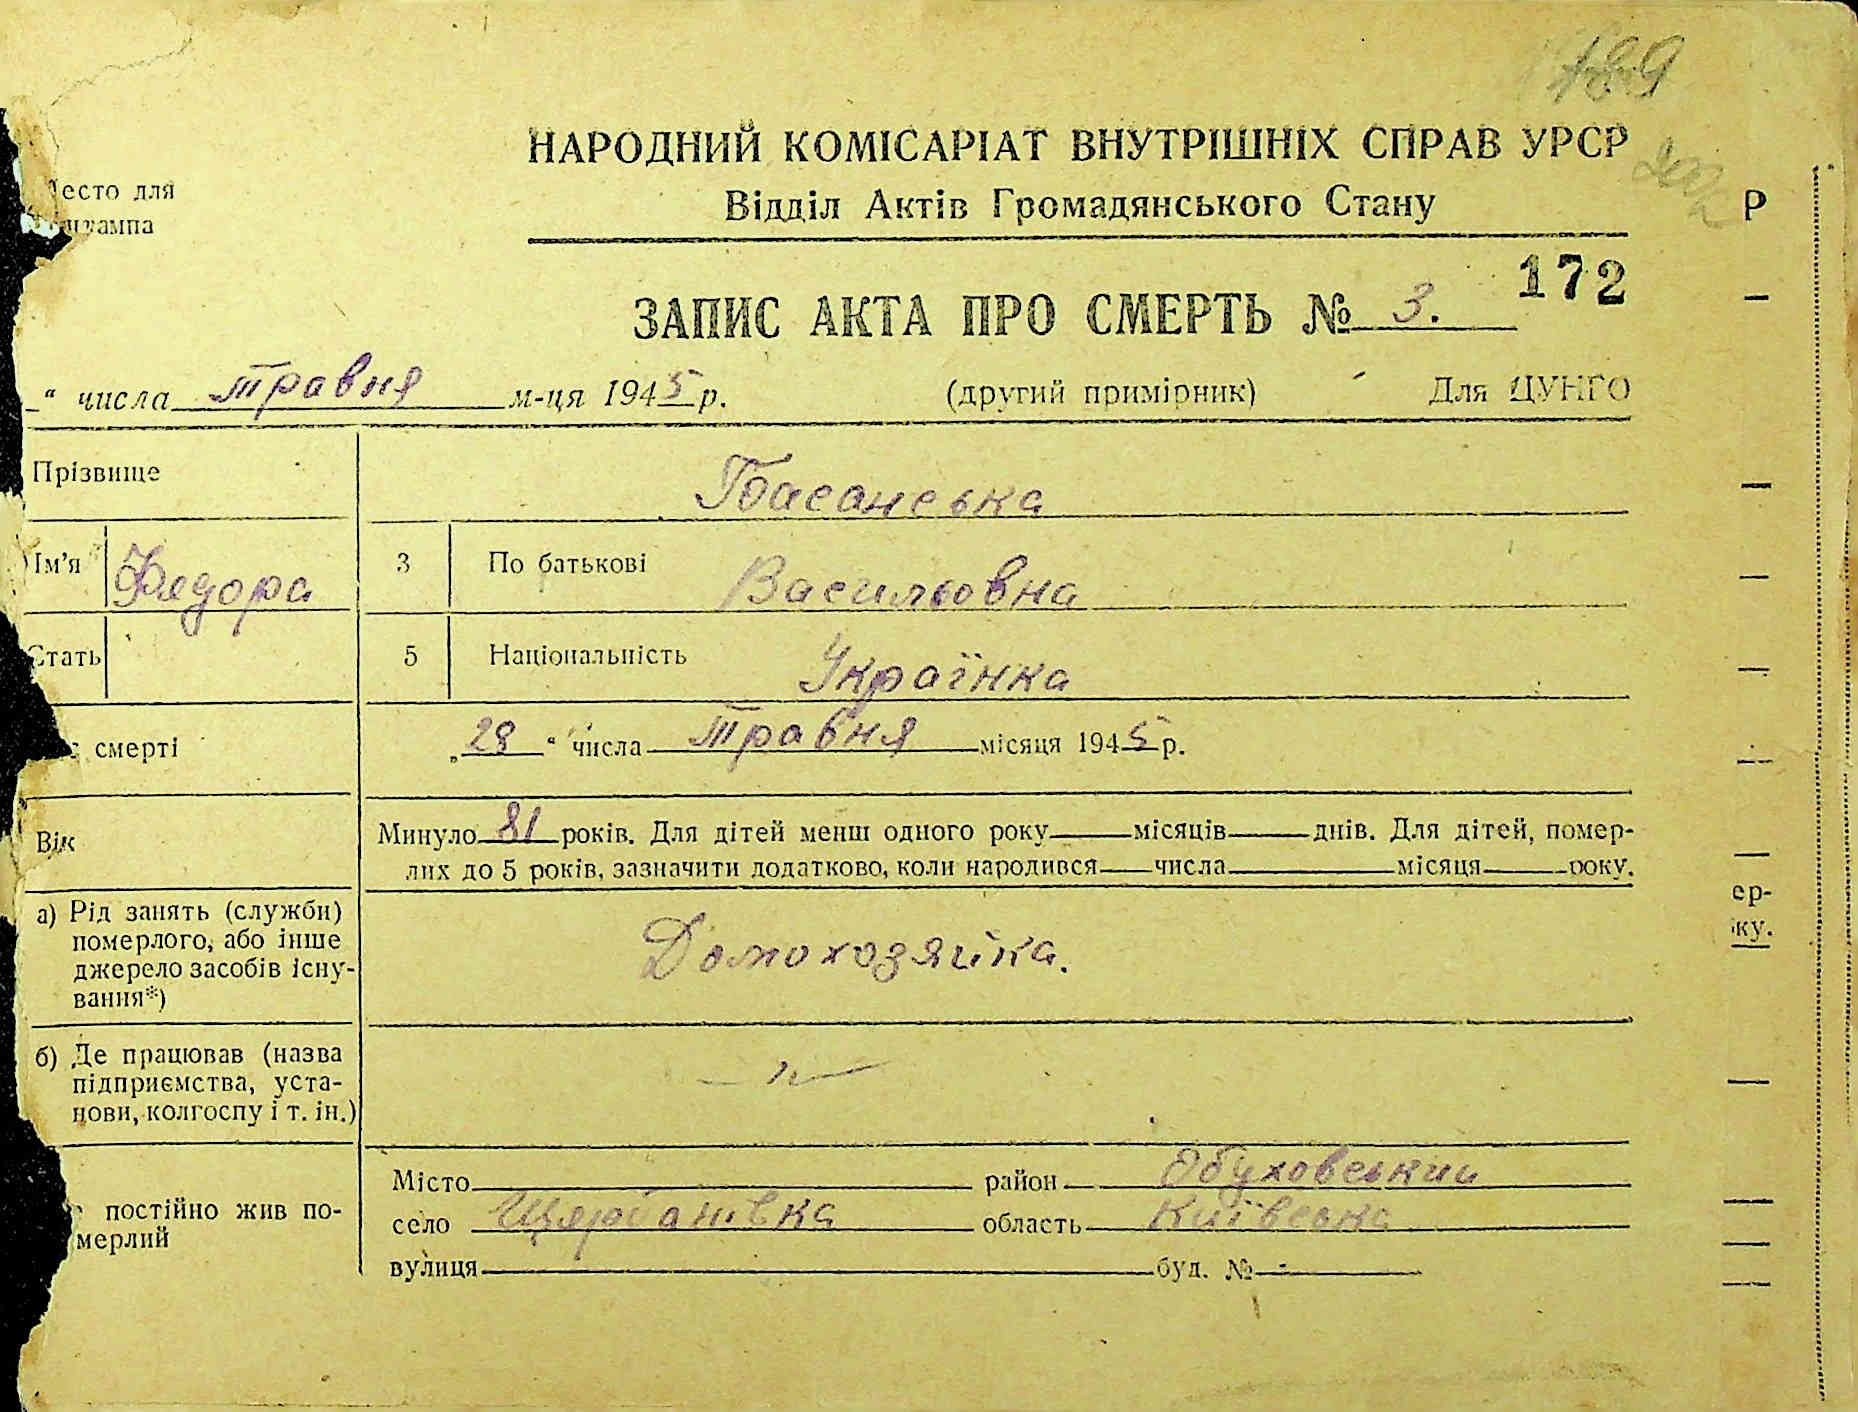 189
НАРОДНИЙ КОМІСАРІАТ ВНУТРІШНІХ СПРАВ УРСР
Відділ Актів Громадянського Стану
Р
есто для
штампа
172
ЗАПИС АКТА ПРО СМЕРТЬ № 3.
" числа травня м-ця 1945 р. (другий примірник) Для ЦУНГО
Прізвище Басанська
Ім'я Федора 3 По батькові Васильовна
Стать 5 Національність Українка
смерті „28" числа травня місяця 1945 р.
Вік Минуло 81 років. Для дітей менш одного року місяців днів. Для дітей, помер-
лих до 5 років, зазначити додатково, коли народився числа місяця року.
ер-
ку.
а) Рід занять (служби)
померлого, або інше
джерело засобів існу-
вання*)
Домохозяйка.
б) Де працював (назва
підприємства, уста-
нови, колгоспу і т. ін.)
— " —
постійно жив по-
мерлий
Місто район Обуховський
село Щербанівка область Київська
вулиця буд. № -